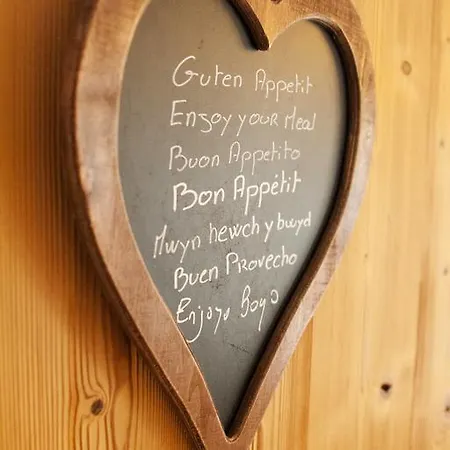 Guten Appetit
Enjoy your Meal
Buon Appetito
Bon Appétit
Mwynhewch y bwyd
Buen Provecho
Enjoyo Boyo